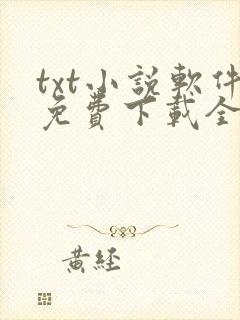 txt小説軟件
免費下載全
黃經